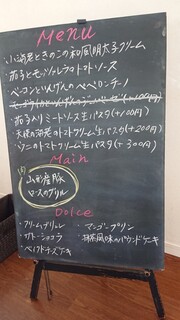 Menu
・小海老ときのこの和風明太子クリーム
・茄子とモッツァレラのトマトソース
・ベーコンといんげんのペペロンチーノ
・茄子入りミートソース生パスタ(+100円)
・天使の海老のトマトクリーム生パスタ(+200円)
・ウニのトマトクリーム生パスタ(+300円)
Main
山形産豚
ロースのグリル
Dolce
・クリームブリュレ
・ガトーショコラ
・ベイクドチーズケーキ
・マンゴープリン
・抹茶風味のパウンドケーキ